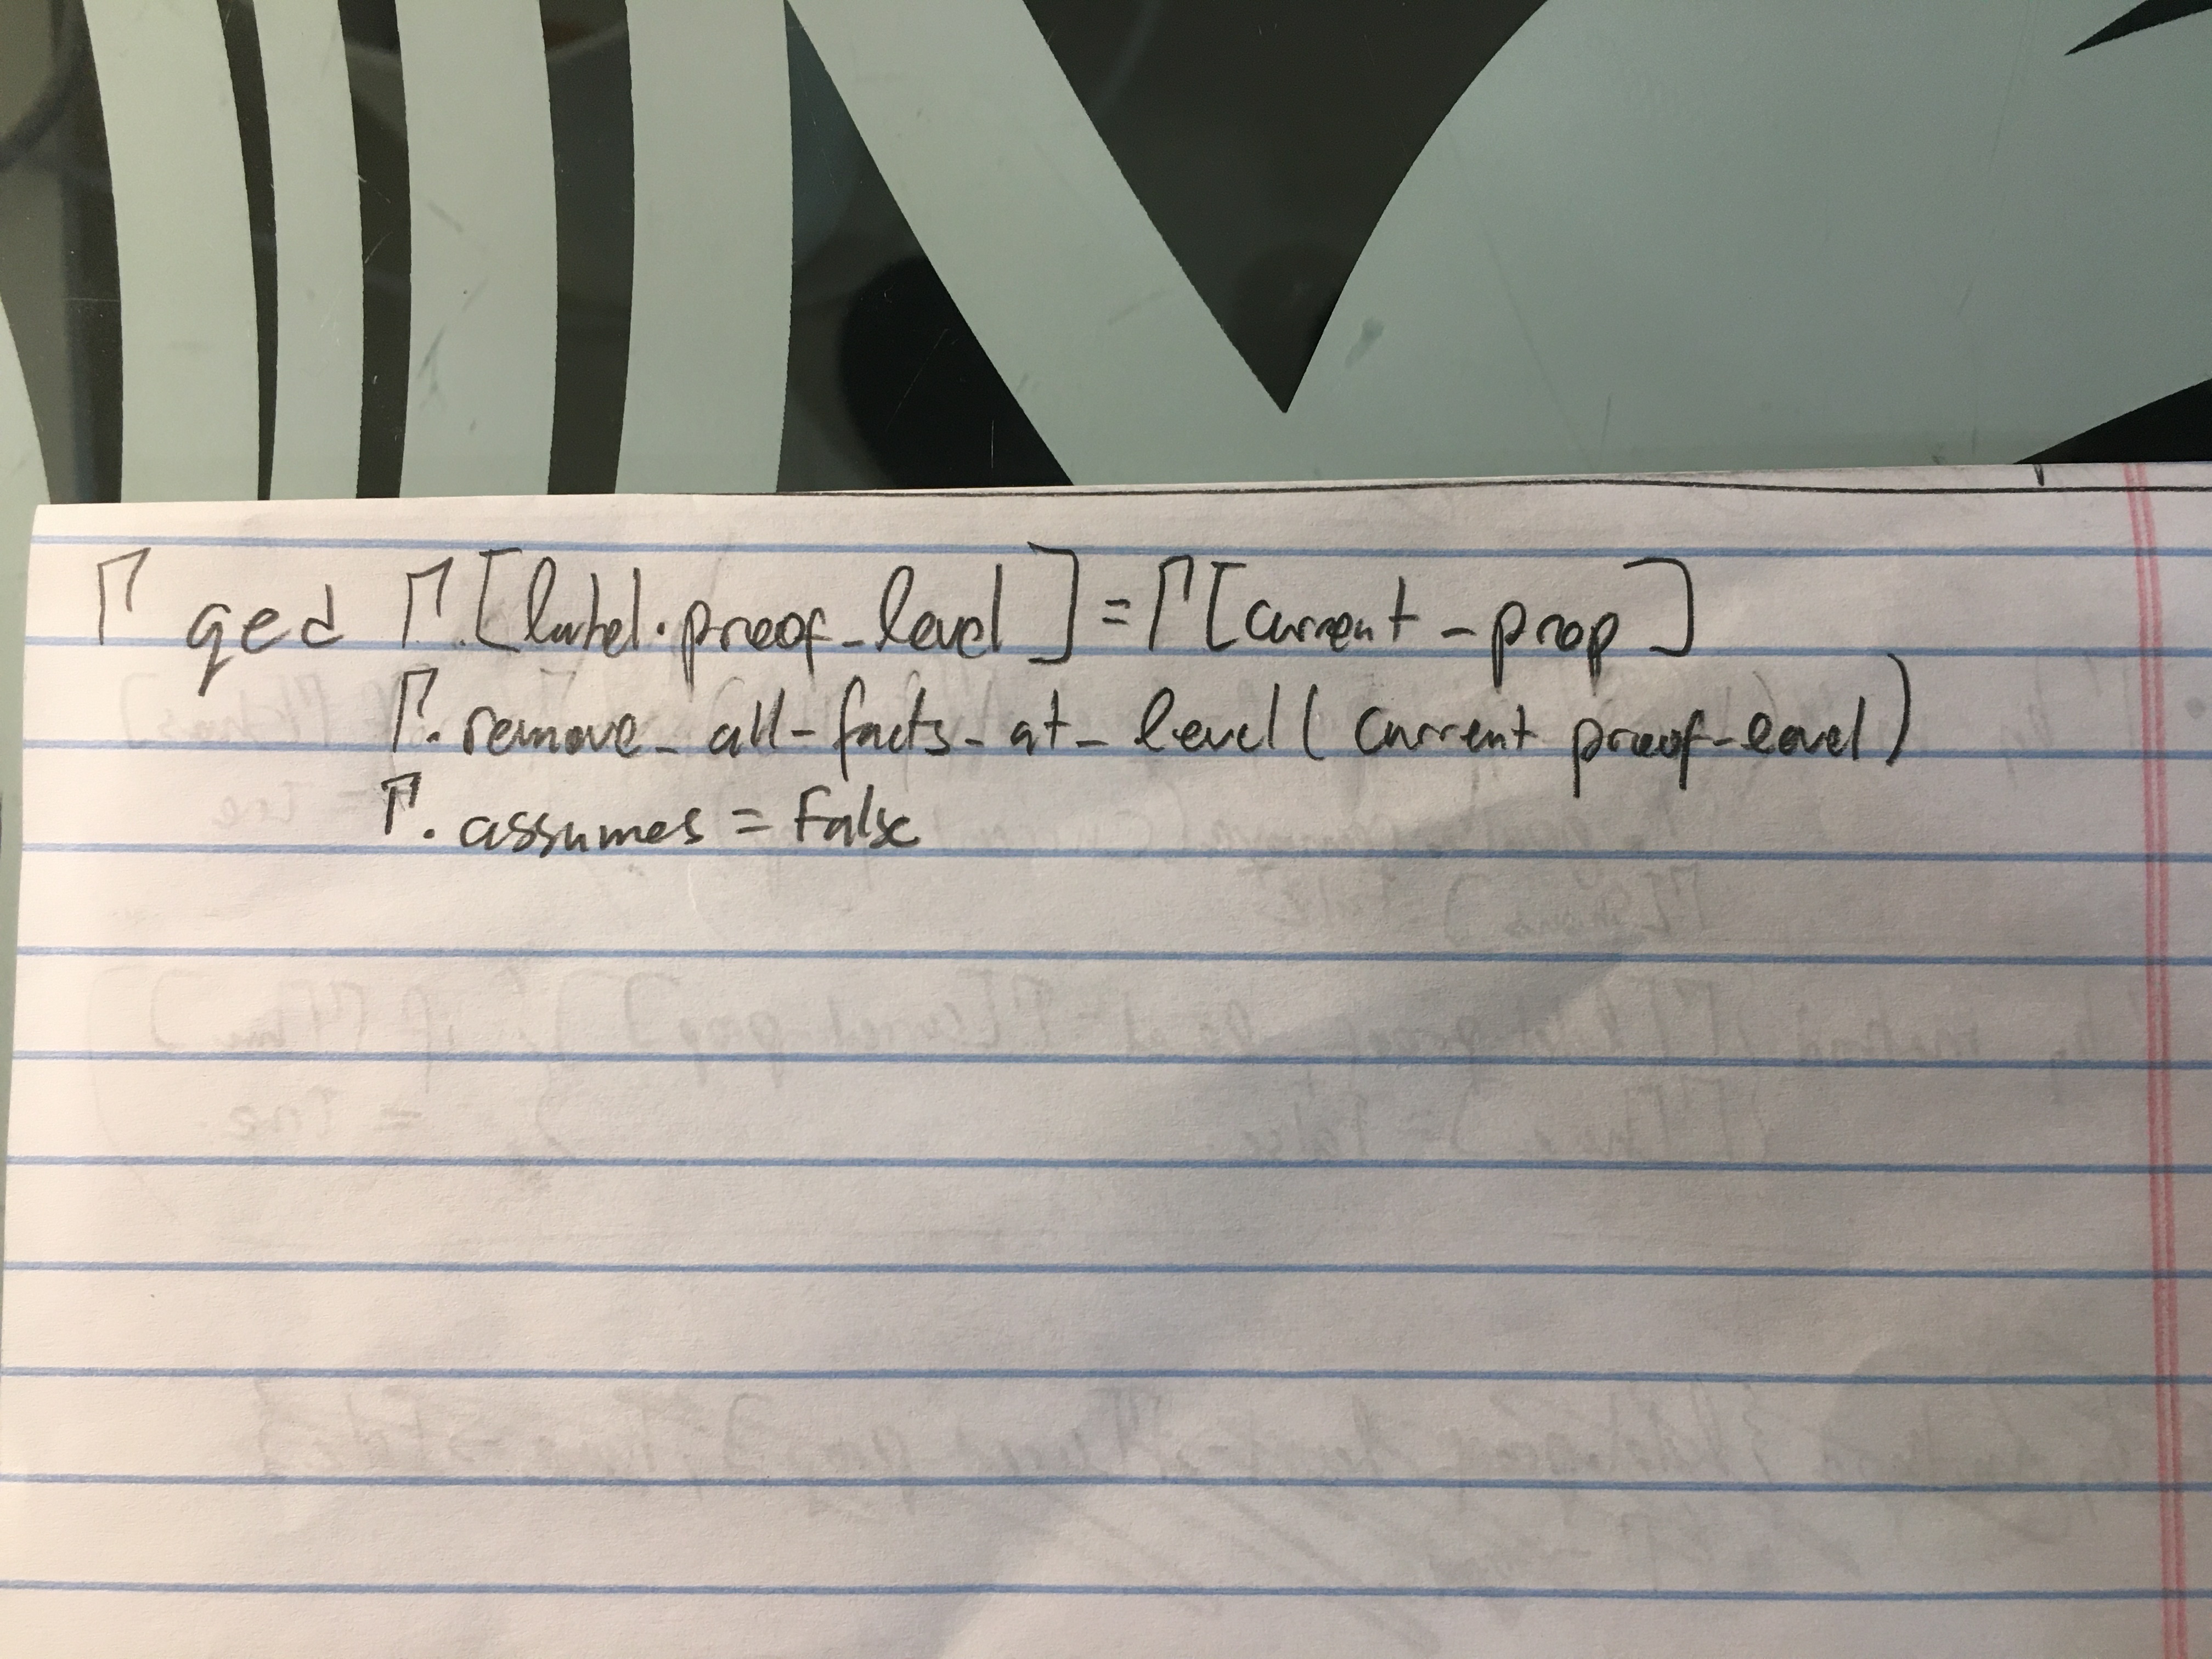 Γ qed Γ.[label.proof_level] = Γ[current_prop]
Γ.remove_all-facts_at_level(current proof-level)
Γ.assumes = False